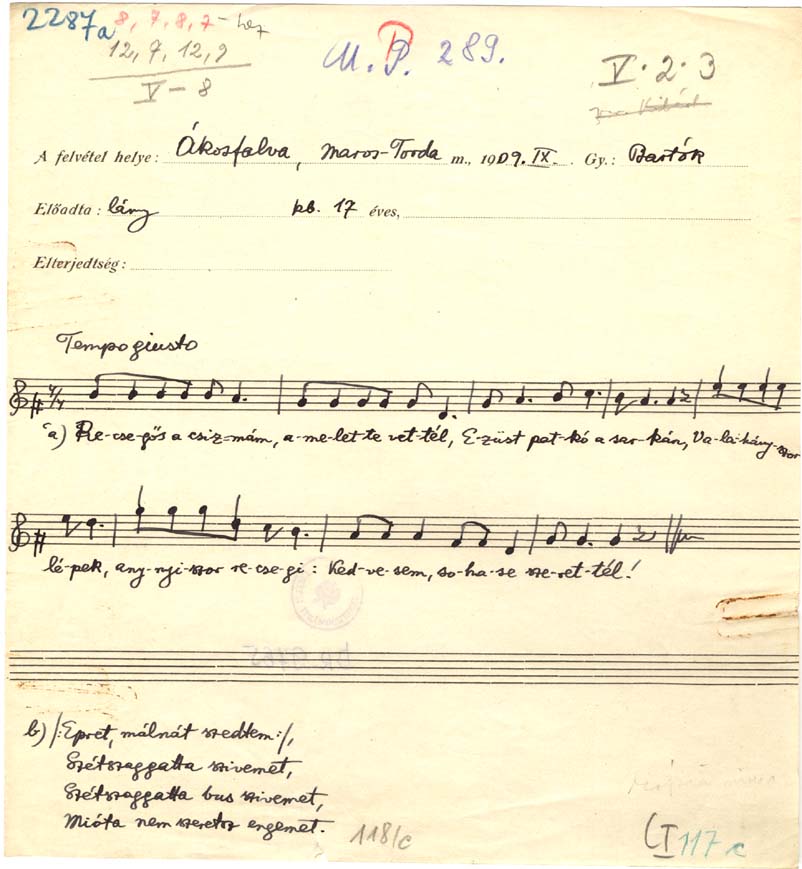 2287a 8, 7, 8, 7 - hez
12, 9, 12, 9
V - 8
M. P. 289.
V. 2. 3
A felvétel helye: Ákosfalva, Maros-Torda m., 1909. IX. Gy.: Bartók
Előadta: lány kb. 17 éves,
Elterjedtség:
Tempo giusto
a) Re-cse-gős a csiz-mám, a-me-let-te vet-tél, E-züst pat-kó a sar-kán, Va-la-hány-szor
lé-pek, any-nyi-szor re-cse-gi: Ked-ve-sem, so-ha-se sze-ret-tél!
b) /:Epret, málnát szedtem:/,
Szétszaggatta szivemet,
Szétszaggatta bus szivemet,
Mióta nem szeretsz engemet.
118/c
I 117 c